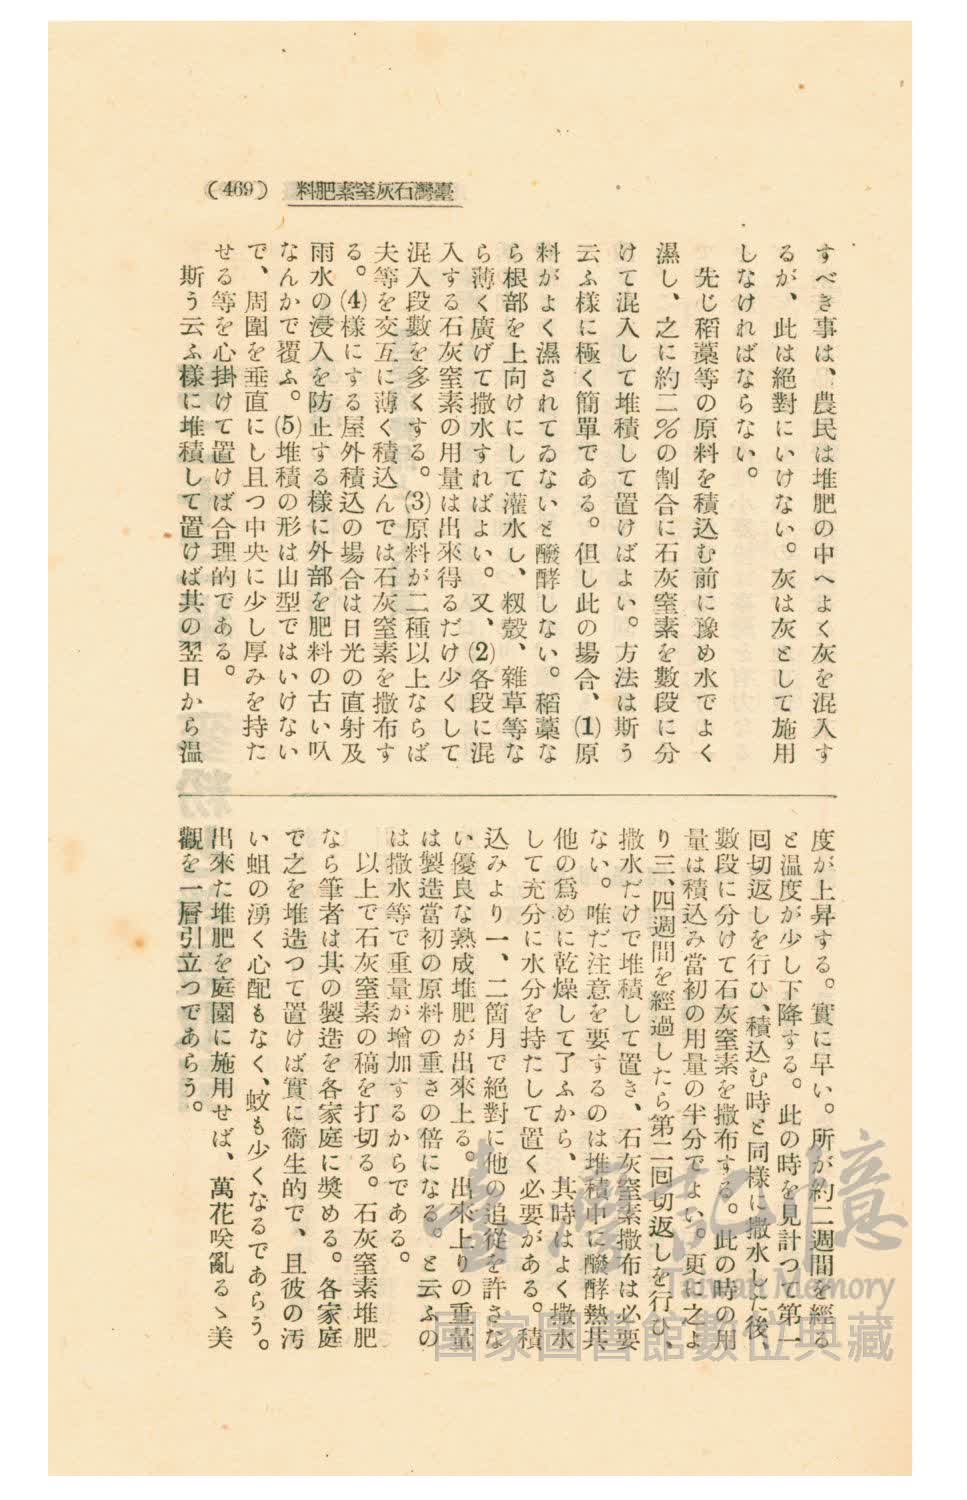 (469) 料肥素窒灰石灣臺
すべき事は、農民は堆肥の中へよく灰を混入す
るが、此は絕對にいけない。灰は灰として施用
しなければならない。
先じ稻藁等の原料を積込む前に豫め水でよく
濕し、之に約二％の割合に石灰窒素を數段に分
けて混入して堆積して置けばよい。方法は斯う
云ふ樣に極く簡單である。但し此の場合、(1)原
料がよく濕されてゐないと醱酵しない。稻藁な
ら根部を上向けにして灌水し、籾殼、雜草等な
ら薄く廣げて撒水すればよい。又、(2)各段に混
入する石灰窒素の用量は出來得るだけ少くして
混入段數を多くする。(3)原料が二種以上ならば
夫等を交互に薄く積込んでは石灰窒素を撒布す
る。(4)樣にする屋外積込の場合は日光の直射及
雨水の浸入を防止する樣に外部を肥料の古い叺
なんかで覆ふ。(5)堆積の形は山型ではいけない
で、周圍を垂直にし且つ中央に少し厚みを持た
せる等を心掛けて置けば合理的である。
斯う云ふ樣に堆積して置けば其の翌日から溫
度が上昇する。實に早い。所が約二週間を經る
と溫度が少し下降する。此の時を見計つて第一
囘切返しを行ひ、積込む時と同樣に撒水した後、
數段に分けて石灰窒素を撒布する。此の時の用
量は積込み當初の用量の半分でよい。更に之よ
り三、四週間を經過したら第二囘切返しを行ひ、
撒水だけで堆積して置き、石灰窒素撒布は必要
ない。唯だ注意を要するのは堆積中に醱酵熱其
他の爲めに乾燥して了ふから、其時はよく撒水
して充分に水分を持たして置く必要がある。積
込みより一、二箇月で絕對に他の追從を許さな
い優良な熟成堆肥が出來上る。出來上りの重量
は製造當初の原料の重さの倍になる。と云ふの
は撒水等で重量が增加するからである。
以上で石灰窒素の稿を打切る。石灰窒素堆肥
なら筆者は其の製造を各家庭に奬める。各家庭
で之を堆造つて置けば實に衞生的で、且彼の汚
い蛆の湧く心配もなく、蚊も少くなるであらう。
出來た堆肥を庭園に施用せば、萬花咲亂るゝ美
觀を一層引立つであらう。
臺灣記憶
Taiwan Memory
國家圖書館數位典藏